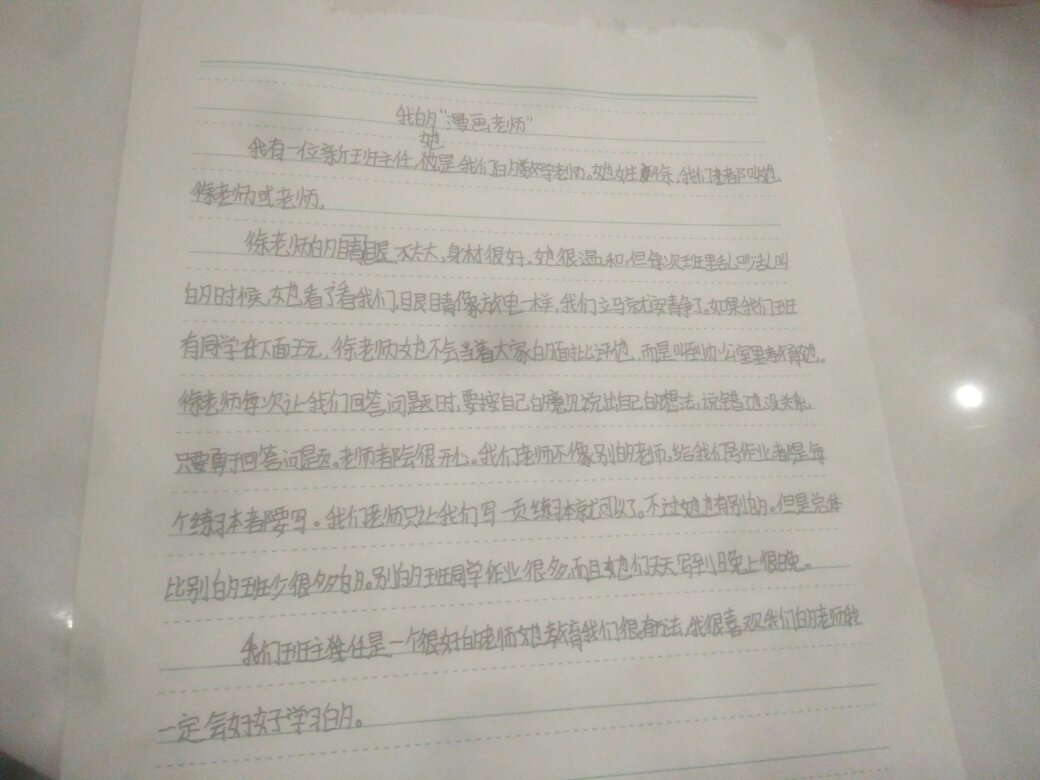 我的“漫画老师”
我有一位新班主任,她是我们的数学老师。她姓徐,我们都叫她
徐老师或老师。
徐老师的眼睛不太大,身材很好。她很温和,但每次班里乱叫乱叫
的时候,她看了看我们,眼睛像放电一样,我们立马就安静了。如果我们班
有同学在下面玩,徐老师她也不会当着大家的面批评他,而是叫到办公室里教育他。
徐老师每次让我们回答问题时,要按自己的意见说出自己的想法,说错了也没关系,
只要勇于回答问题。老师都会很开心。我们老师不像别的老师,给我们写作业都是每
个练习本都要写。我们老师只让我们写一页练习本就可以了。不过她也有别的。但是总体
比别的班少很多的。别的班同学作业很多,而且她们天天写到晚上很晚。
我们班主任是一个很好的老师她教育我们很有方法,我很喜欢我们的老师我
一定会好好学习的。